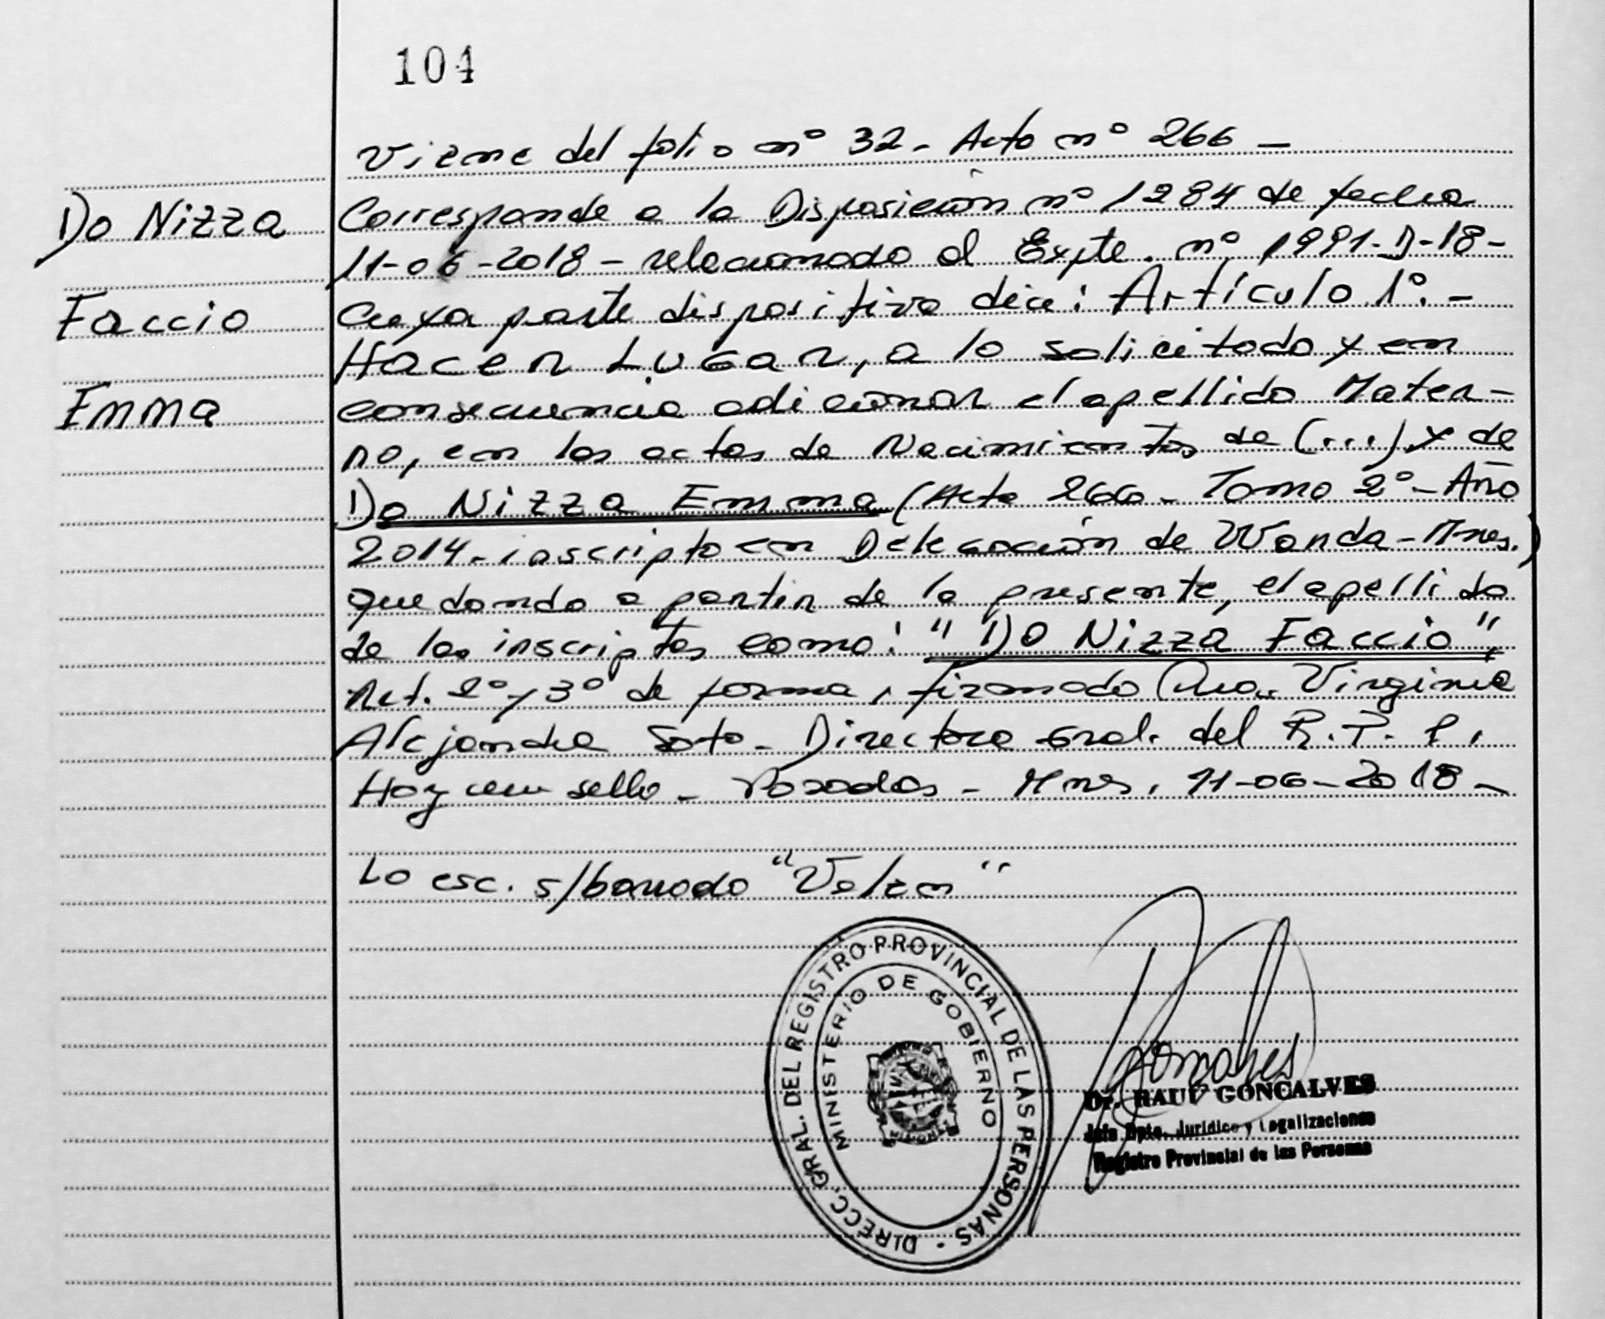 104
Viene del folio nº 32 - Acta nº 266 -
Do Nizza
Faccio
Emma
Corresponde a la Disposición nº 1284 de fecha
11-06-2018 - relacionado al Expte. nº 1991-D-18-
cuya parte dispositiva dice: Artículo 1º. -
Hacer Lugar, a lo solicitado y en
consecuencia adicionar el apellido Mater-
no, en las actas de Nacimientos de (...) y de
Do Nizza Emma (Acta 266 - Tomo 2º - Año
2014 - inscripta en Delegación de Wanda - Mnes.)
quedando a partir de la presente, el apellido
de las inscriptas como: "Do Nizza Faccio",
Art. 2º y 3º de forma, firmado Dra. Virginia
Alejandra Soto - Directora Gral. del R.P.P.
Hay un sello - Posadas - Mnes. 11-06-2018 -
Lo esc. s/borrado "Valen"
DIRECC. GRAL. DEL REGISTRO PROVINCIAL DE LAS PERSONAS -
MINISTERIO DE GOBIERNO
Dr. RAUL GONCALVES
Jefe Dpto. Jurídico y Legalizaciones
Registro Provincial de las Personas